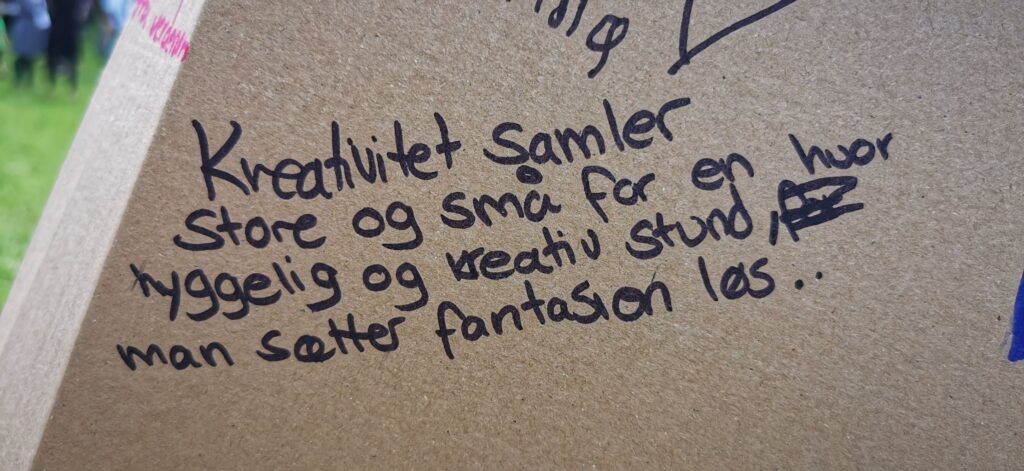 Kreativitet samler
store og små for en
hyggelig og kreativ stund, hvor
man sætter fantasion løs..